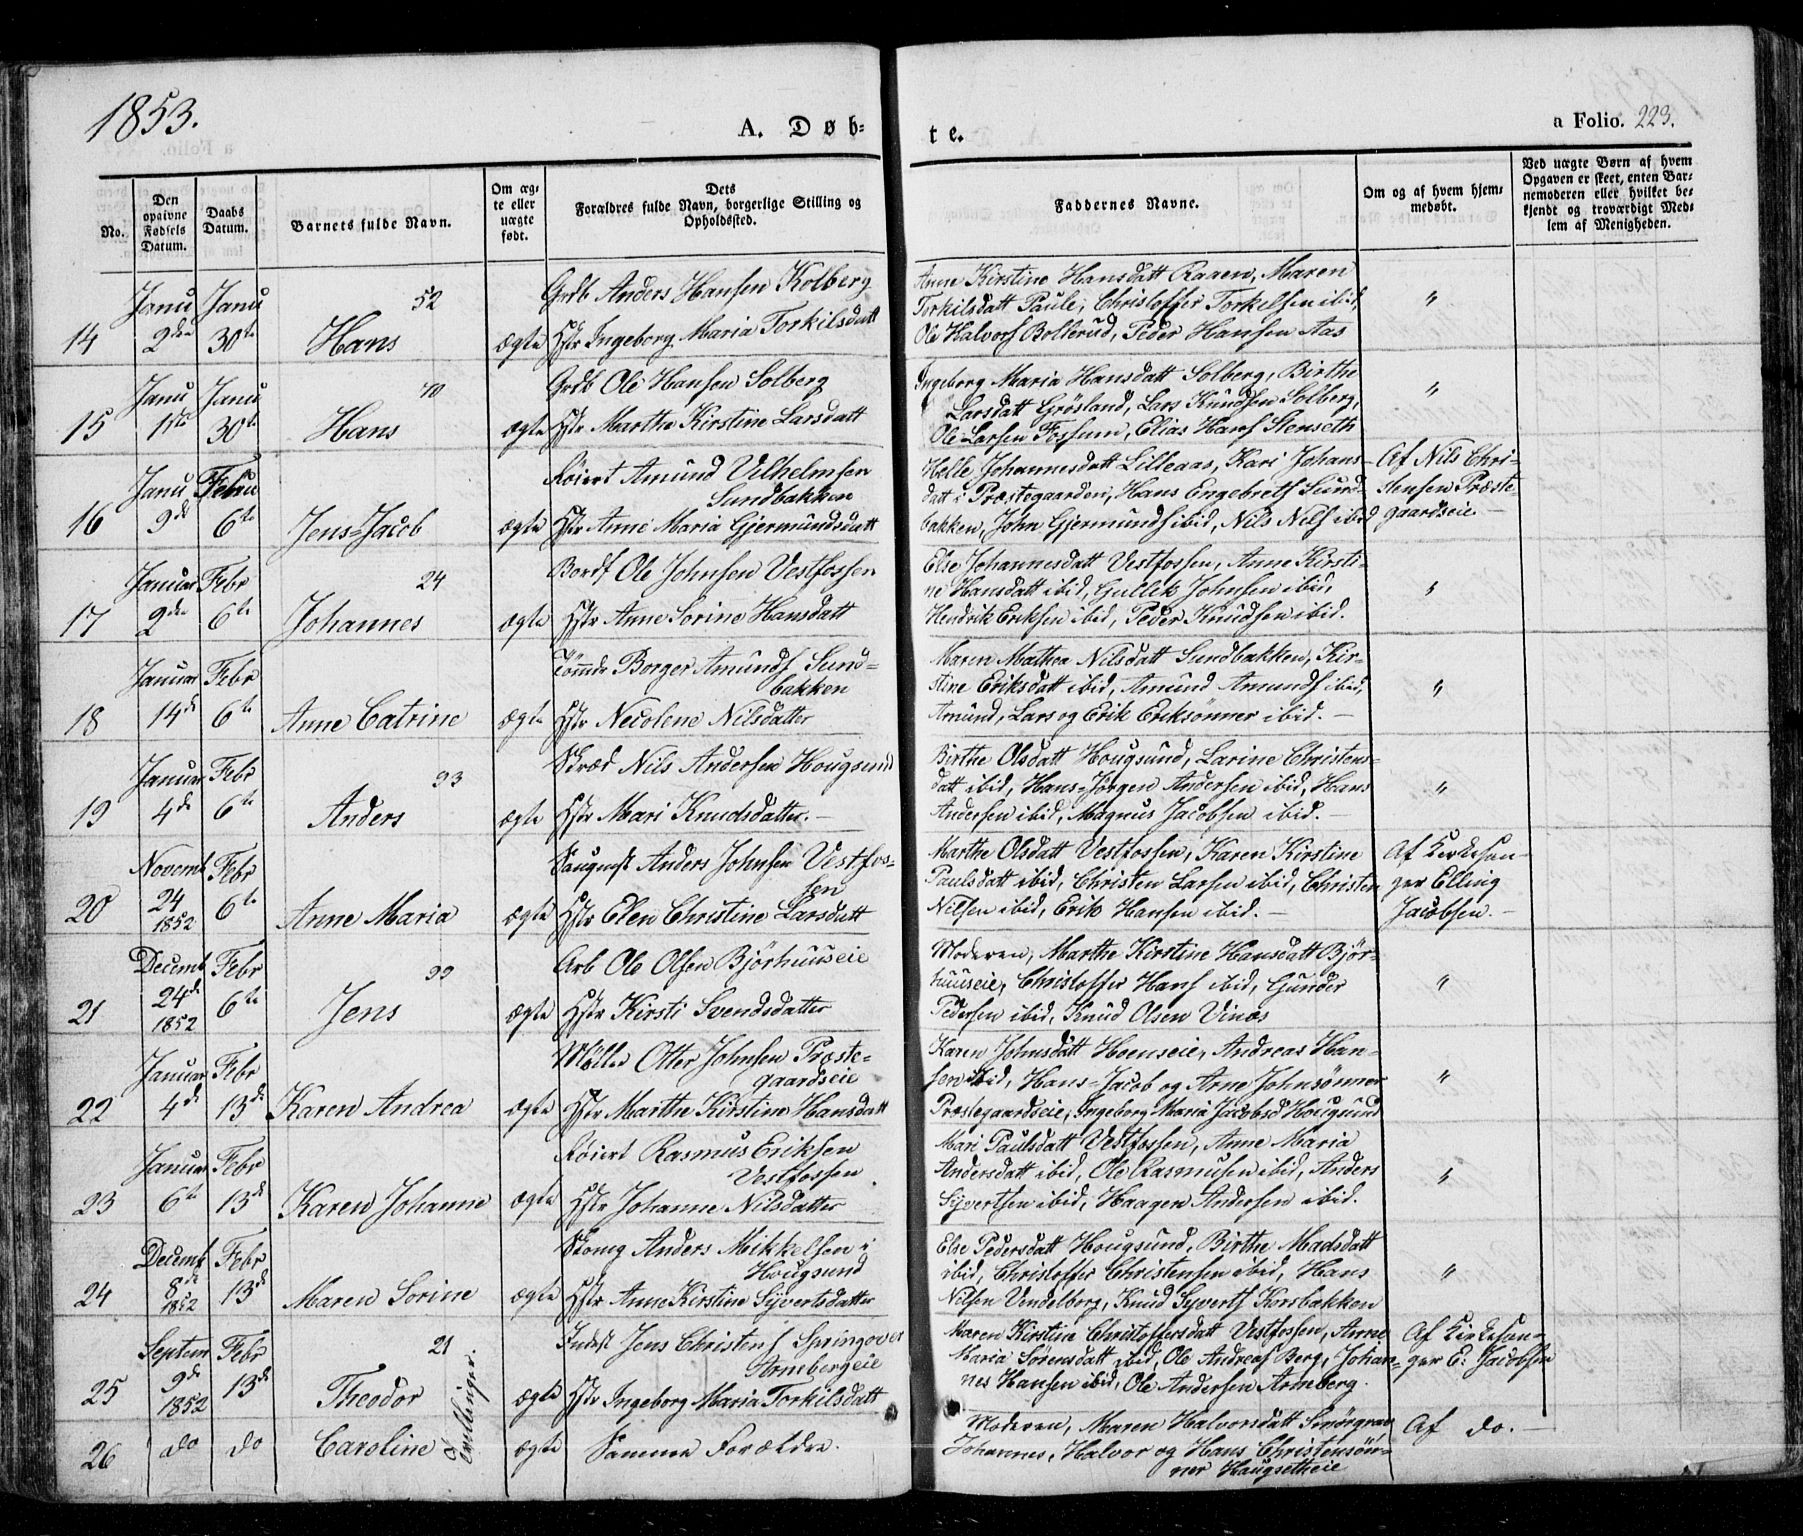 1853.
A. Døb-
te.
a Folio. 223.
No.
Den opgivne Fødsels Datum.
Daabs Datum.
Barnets fulde Navn.
Om ægte eller uægte født.
Dets Forældres fulde Navn, borgerlige Stilling og Opholdssted.
Faddernes Navne.
Om og af hvem hjemmedøbt.
Ved uægte Børn af hvem Opgaven er skeet, enten Barnemoderen eller hvilket bekjendt og troværdigt Medlem af Menigheden.
14 Janu 2den Janu 30te Hans 52 ægte
Grdb Anders Hansen Kolberg
Hstr Ingeborg Maria Torkilsdatt
Anne Kirstine Hansdatt Raaen, Maren
Torkilsdatt Paule, Christoffer Torkelsen ibid,
Ole Halvors Bollerud, Peder Hansen Aas
"
15 Janu 1ste Janu 30te Hans 70 ægte
Grdb Ole Hansen Solberg
Hstr Marthe Kirstine Larsdatt
Ingeborg Maria Hansdatt Solberg, Birthe
Larsdatt Grøsland, Lars Knudsen Solberg,
Ole Larsen Fossum, Elias Hans Stenseth
"
16 Janu 9de Febru 6te Jens=Jacob ægte
Røiert Amund Vilhelmsen
Sundbakken
Hstr Anne Maria Gjermundsdatt
Helle Johannesdatt Lilleaas, Kari Johans-
datt i Præstegaarden, Hans Engebreths Sund-
bakken, John Gjermunds ibid, Nils Nils ibid
Af Nils Chri-
stensen Præste-
gaardseie.-
17 Januar 2den Febr 6te Johannes 24 ægte
Bords Ole Johnsen Vestfossen
Hstr Anne Sorine Hansdatt
Else Johannesdatt Vestfossen, Anne Kirsti-
ne Hansdatt ibid, Gullik Johnsen ibid,
Hendrik Eriksen ibid, Peder Knudsen ibid.
"
18 Januar 14de Febr 6te Anne Catrine ægte
Tømmdr Borger Amunds Sund-
bakken
Hstr Necolene Nilsdatter
Maren Mathea Nilsdatt Sundbakken, Kir-
stine Eriksdatt ibid, Amund Amunds ibid,
Amund, Lars og Erik Eriksønner ibid.-
"
19 Januar 4de Febr 6te Anders 93 ægte
Skræd Nils Andersen Hougsund
Hstr Mari Knudsdatter.-
Birthe Olsdatt Hougsund, Larine Christens-
datt ibid, Hans=Jørgen Andersen ibid, Hans
Andersen ibid, Magnus Jacobsen ibid.-
"
20 Novemb 24 1852 Febr 6te Anne Maria ægte
Saugmst Anders Johnsen Vestfos-
sen
Hstr Elen Christine Larsdatt
Marthe Olsdatt Vestfossen, Karen Kirstine
Paulsdatt ibid, Christen Larsen ibid, Christen
Nilsen ibid, Erik Hansen ibid.-
Af Kirkesan-
ger Elling
Jacobsen.-
21 Decemb 24de 1852 Febr 6te Jens 99 ægte
Arb Ole Olsen Bjørhuuseie
Hstr Kirsti Svendsdatter
Moderen, Marthe Kirstine Hansdatt Bjør-
huuseie, Christoffer Hans ibid, Gunder
Pedersen ibid, Knud Olsen Vinæs
"
22 Januar 4de Febr 13de Karen Andrea ægte
Møller Otter Johnsen Præste-
gaardseie
Hstr Marthe Kirstine Hansdatt
Karen Johnsdatt Hoenseie, Andreas Han-
sen ibid, Hans=Jacob og Arne Johnsønner
Præstegaardseie, Ingeborg Maria Jacobsd Hougsund
"
23 Januar 6te Febr 13de Karen Johanne ægte
Røiert Rasmus Eriksen
Vestfossen
Hstr Johanne Nilsdatter
Mari Paulsdatt Vestfossen, Anne Maria
Andersdatt ibid, Ole Rasmusen ibid, Anders
Syvertsen ibid, Haagen Andersen ibid.
"
24 Decemb 8de 1852 Febr 13de Maren Sorine ægte
Skomg Anders Mikkelsen i
Hougsund
Hstr Anne Kirstine Syvertsdatter
Else Pedersdatt Hougsund, Birthe Madsdatt
ibid, Christoffer Christensen ibid, Hans
Nilsen Vendelborg, Knud Syverts Korsbakken
"
25 Septem 9de 1852 Febr 13de Theodor 21 Tvillinger. ægte
Inderst Jens Christens Springover
Arnebergeie
Hstr Ingeborg Maria Torkilsdatt
Maren Kirstine Christoffersdatt Vestfossen, Anne
Maria Sørensdatt ibid, Ole Andreas Berg, Johan-
nes Hansen ibid, Ole Andersen Arneberg.
Af Kirkesan-
ger E: Jacobsen
26 do do Caroline ægte
Samme Forældre.
Moderen, Maren Halvorsdatt Smørgrav
Johannes, Halvor og Hans Christensøn-
ner Haugsetheie
Af do.-